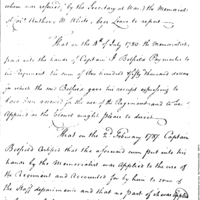 whom was referred, by the Secretary at War, the Memorial
of Mr. Anthony W. White, begs Leave to report
That on the 11th of July 1780 the Memorialist
paid into the hands of Captain Bedford Paymaster to
his Regiment the sum of one hundred fifty thousand dollars
in which the said Bedford gave his receipt
been for the use of the Regiment and to be
applied as the Court might please to direct
That on the 2d February 1787 Captain
Bedford Certifies that the aforesaid sum put into his
hands by the Memorialist was applied to the use of
the Regiment and Accounted for by him to some of
the Staff department and that no part of it was applied